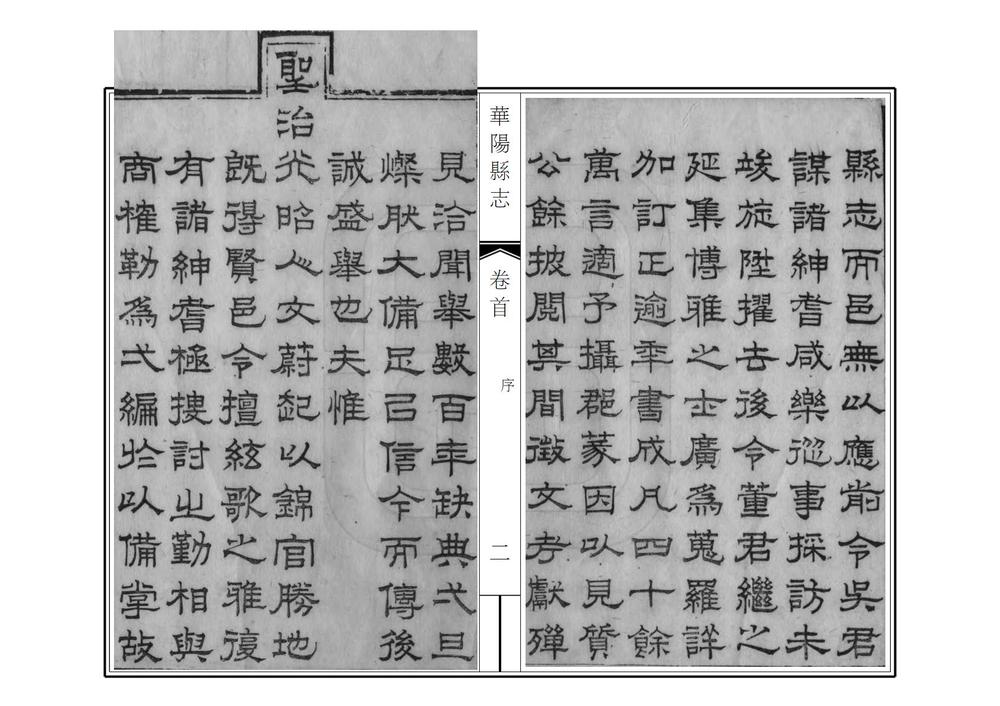 縣志而邑無以應前令吳君
謀諸紳耆咸樂從事採訪未
竣旋陞擢去後令董君繼之
延集博雅之士廣為蒐羅詳
加訂正逾年書成凡四十餘
萬言適予攝郡篆因以見質
公餘披閱其間徵文考獻殫
華陽縣志
卷首
序
二
見洽聞舉數百年缺典弌旦
燦肰大備足㠯信今而傳後
誠盛舉也夫惟
聖治光昭人文蔚起以錦官勝地
既得賢邑令擅絃歌之雅復
有諸紳耆極搜討之勤相與
商榷勒為弌編於以備掌故